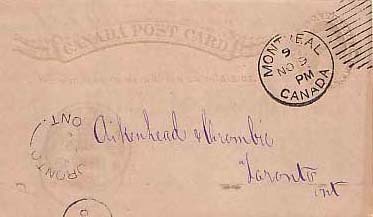 CANADA POST CARD
MONTREAL
9
NO 9
PM
CANADA
Aikenhead & Crombie
Toronto
Ont
TORONTO
ONT.